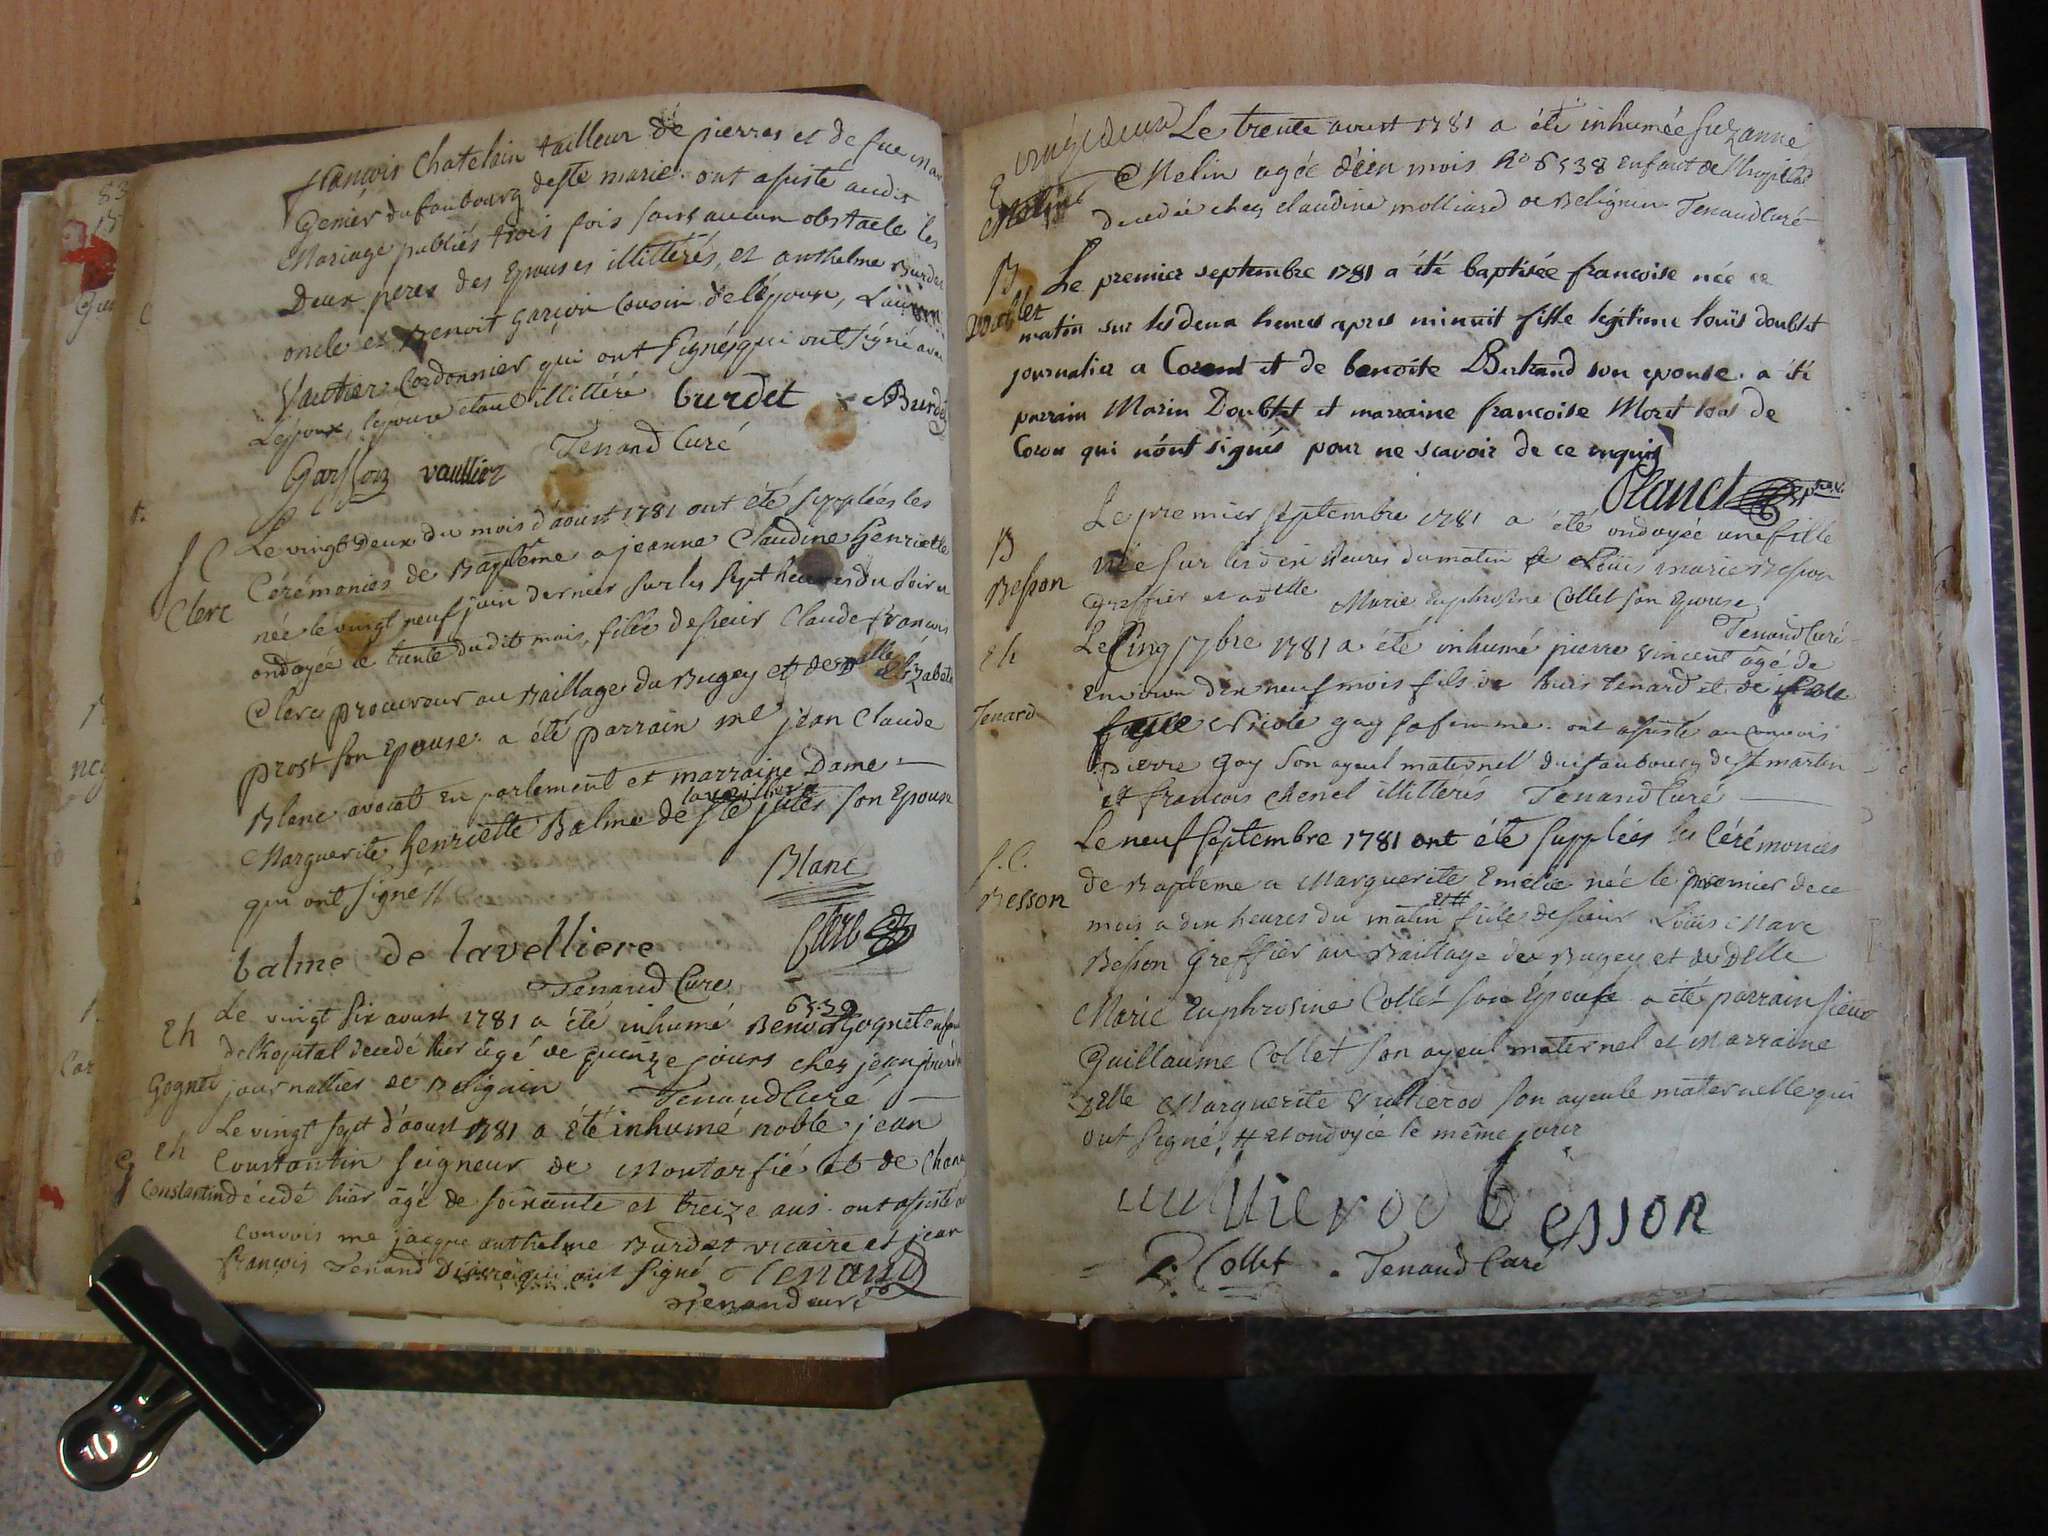 françois Chatelain tailleur de pierres et de feue
Genier du faubourg de ste marie. ont assisté audit
Mariage publiés trois fois sans aucun obstacle les
Deux peres des Epouses illittérés, et anthelme Burdet
oncle et Benoit garçon Cousin de l'époux,
Vautier Cordonnier qui ont signés qui ont signé avec
L'époux, l'epouse etant illittéré burdet Burdet
Tenand Curé
Garsson vaullier
S C
Clerc
Le vingt Deux du mois d'aoust 1781 ont été supplées les
Cérémonies de Baptême a jeanne Claudine henriette
née le vingt neuf juin dernier sur les sept heures du soir et
ondoyée le trente dudit mois, fille de sieur Claude françois
Clerc procureur au Baillage du Bugey et de delle Elizabeth
prost son Epouse. a été parrain me jean Claude
Blanc avocat en parlement et marraine Dame
lavelliere
Marguerite henriette Balme de ste jules son Epouse
qui ont signé
Blanc
balme de lavelliere
Clerc
Tenand Curé
Eh
Gognet
6539
Le vingt six aoust 1781 a été inhumé Benoit Gognet enfant
de l'hopital decedé hier âgé de quinze jours chez jean
journallier de Belignin Tenand Curé
Eh
Constantin
Le vingt sept d'aoust 1781 a été inhumé noble jean
Constantin seigneur de Montarfié et de
décédé hier âgé de soixante et treize ans. ont assisté au
convois me jacque anthelme Burdet vicaire et jean
françois Tenand qui ont signé Tenand
Tenand curé
Le trente aoust 1781 a été inhumée suzanne
Melin agée d'un mois No 6538 enfant de l'hopital
decedée chez claudine molliard de Belignin Tenand Curé
B
Doublet
Le premier septembre 1781 a été baptisée francoise née ce
matin sur les deux heures apres minuit fille legitime louis doublet
journalier a Coron et de benoite Bertrand son epouse. a été
parrain Marin Doublet et marraine francoise Moret tous de
Coron qui n'ont signés pour ne scavoir de ce enquis
Planet
B
Besson
Le premier septembre 1781 a été ondoyée une fille
née sur les dix heures du matin de Louis marie Besson
Greffier et de delle Marie Euphrosine Collet son Epouse
Tenand Curé
Eh
Tenard
Le Cinq 7bre 1781 a été inhumé pierre vincent âgé de
Environ dix neuf mois fils de louis tenard et de
Nicole gay sa femme. ont assisté au convois
pierre Gay son ayeul maternel du faubourg de st martin
et francois Chenel illitterés Tenand Curé
S. C.
Besson
Le neuf septembre 1781 ont été supplées les Cérémonies
de Baptême a Marguerite Emélie née le premier de ce
mois a dix heures du matin # fille de sieur Louis Marc
Besson Greffier au Baillage du Bugey et de Delle
Marie Euphrosine Collet son Epouse. a été parrain sieur
Guillaume Collet son ayeul maternel et Marraine
Delle Marguerite Vullierod son ayeule maternelle qui
ont signé # et ondoyée le même jour
vullierod besson
Collet Tenand Curé